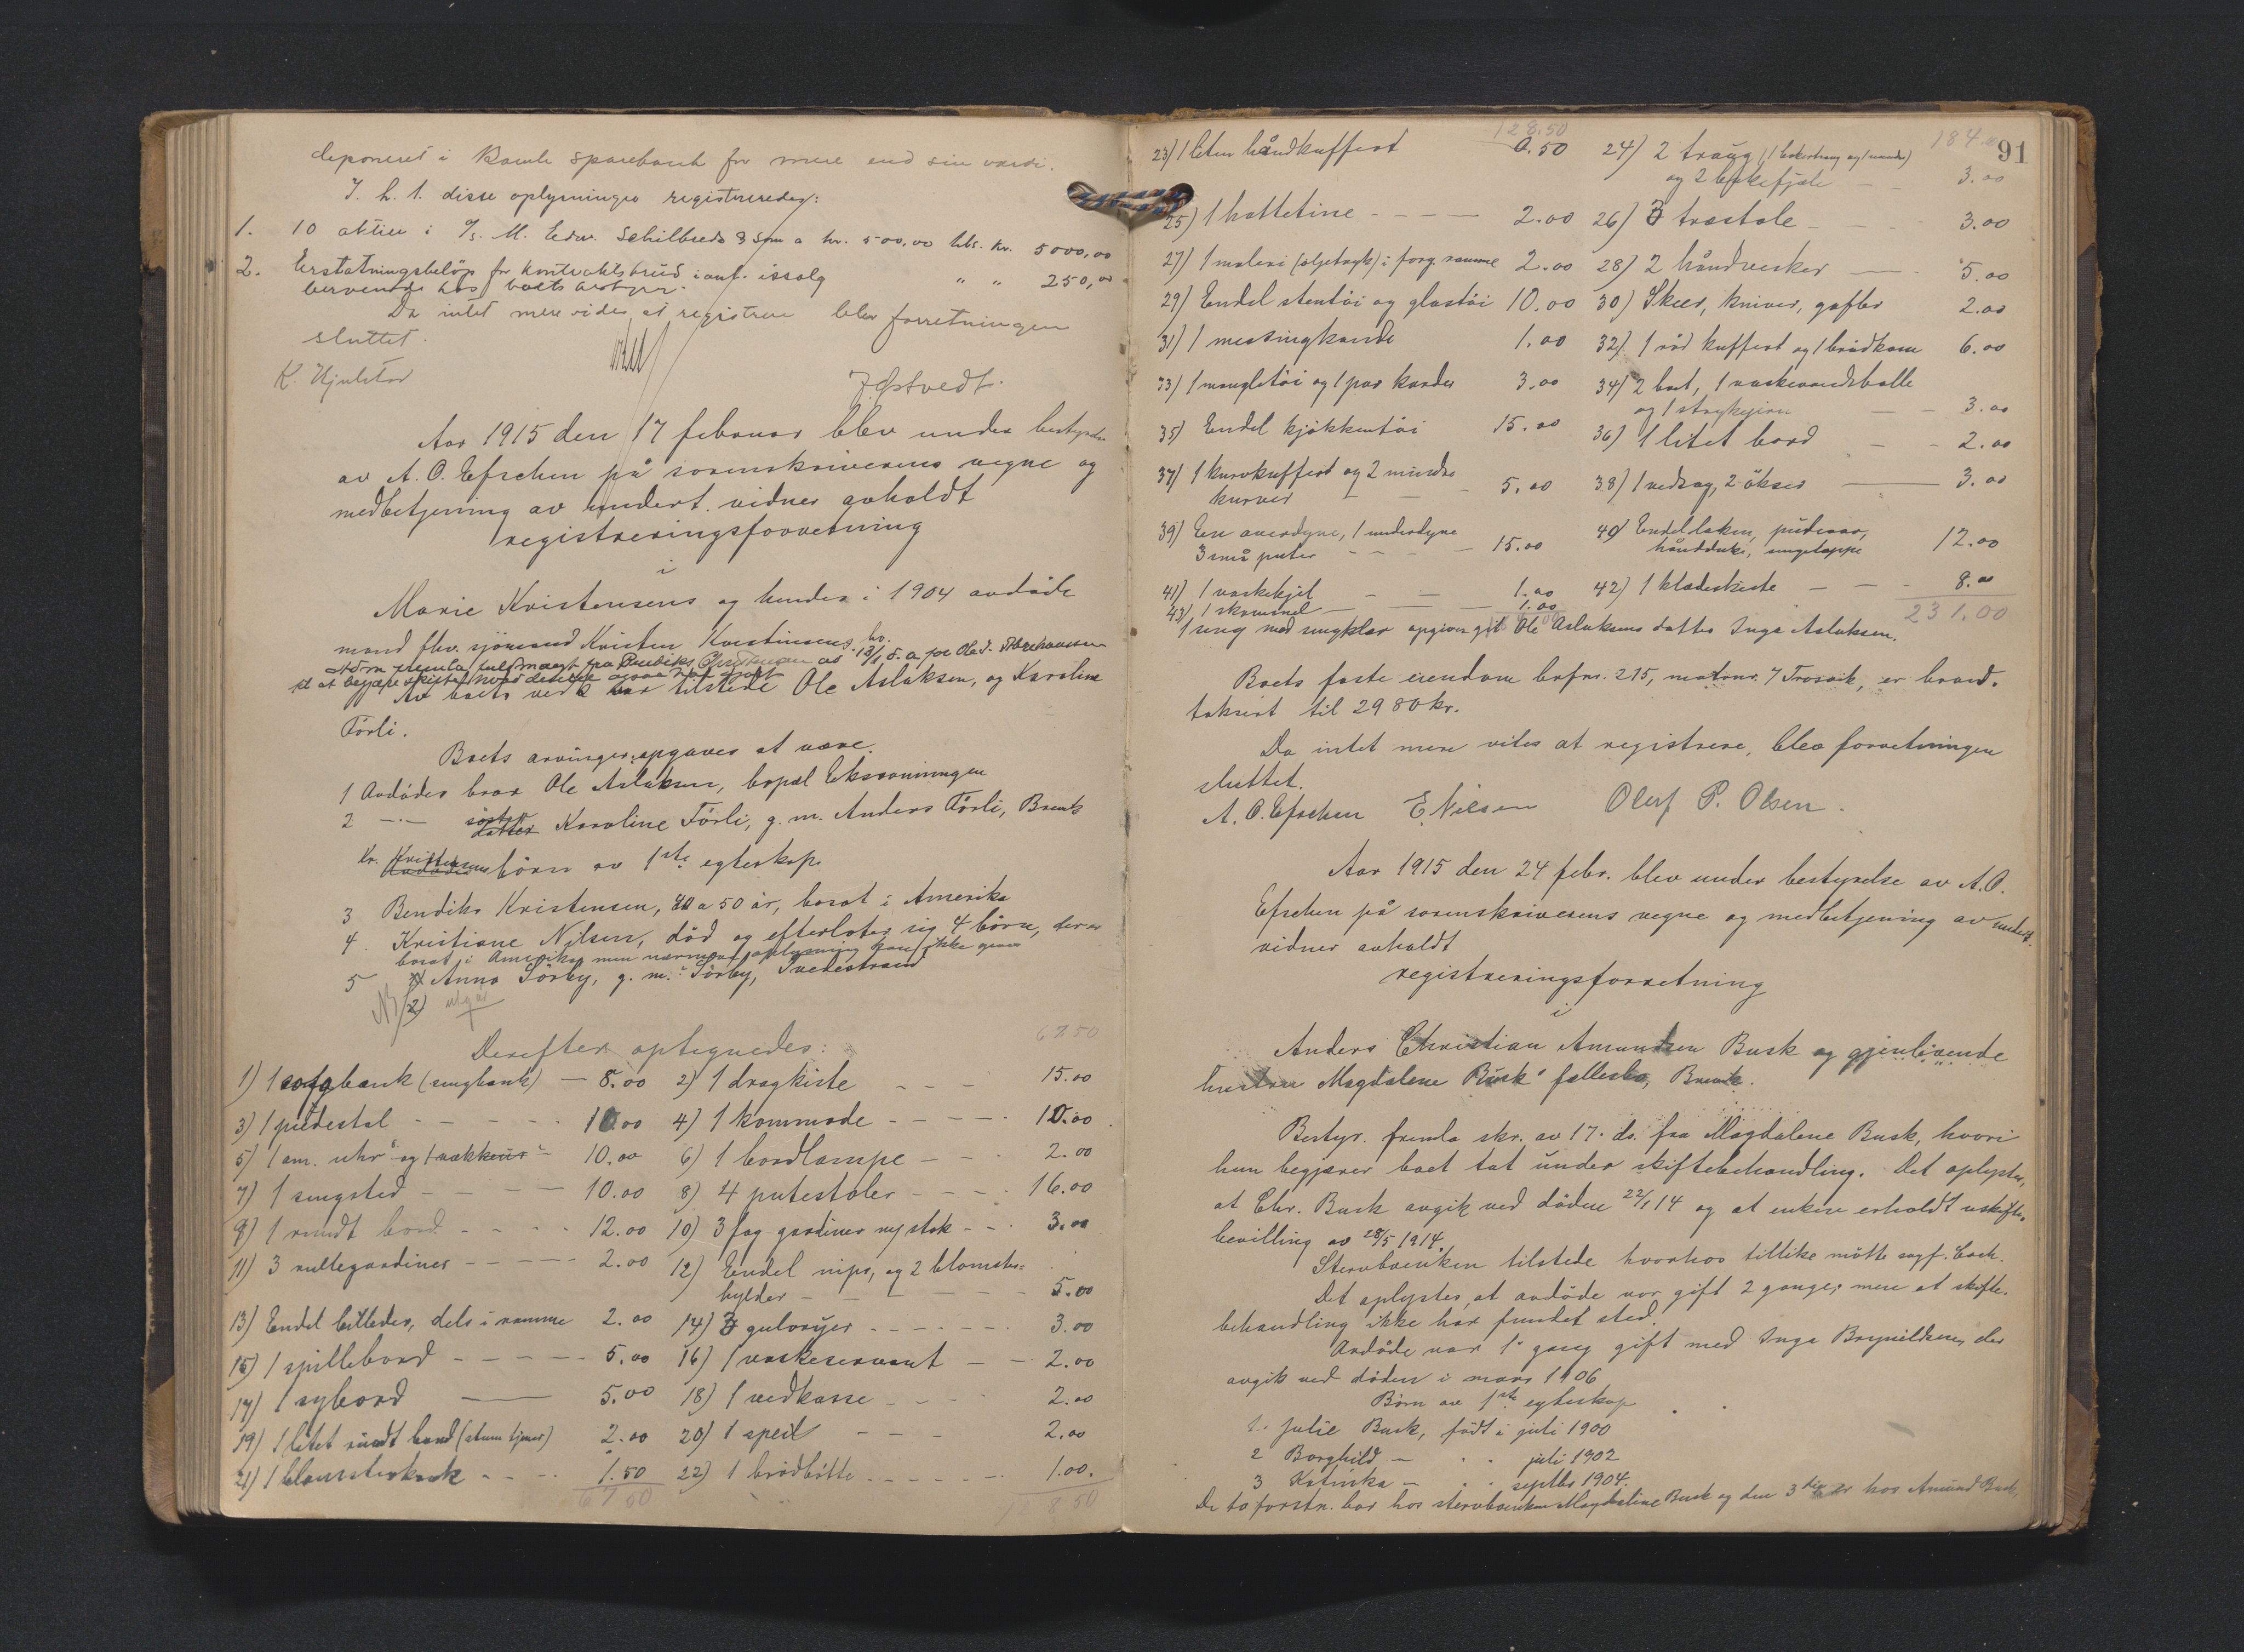 deponeret i Bamle sparebank for mere end sin værdi.
I. h. t. disse oplysninger registreredes:
1. 10 aktier i A/S. M. Edw. Schilbreds Søn a kr. 500,00 kr. 5000,00
2. Erstatningsbeløp for kontraktsbrud i anl. issalg " " 250,00
beroende hos boets bestyrer.
Da intet mere vides at registrere blev forretningen
sluttet.
K. Hjulstad
J. Østvedt.
Aar 1915 den 17 februar blev under bestyrelse
av A. O. Efschen på sorenskriverens vegne og
medbetjening av undert. vidner avholdt
registreringsforretning
i
Marie Kristensens og hendes i 1904 avdøde
mand fhv. sjømand Kristen Kristensens bo.
Adm. fremla fuldmagt fra Bendiks Christensen av 13/1 d. a. for Ole J. Abrahamsen
til at begjære skifte, hvad denne ogsaa har gjort
Av boets vedk. var tilstede Ole Aslaksen, og Karoline
Førli.
Boets arvinger opgaves at være.
1 Avdødes bror Ole Aslaksen, bopæl Eksrønningen
2 — søster Karoline Førli, g. m. Anders Førli, Brevik
Kr. Kristensens børn av 1ste egteskap.
3 Bendiks Kristensen, 40 a 50 år, bosat i Amerika
4. Kristiane Nilsen, død og efterlater sig 4 børn, der er
bosat i Amerika men nærmere oplysning kan ikke gives
5 Anna Sørby, g. m. Sørby, Tvedestrand
NB 2) utgår
Derefter optegnedes: 67 50
1) 1 sofabænk (sengbænk) — 8.00 2) 1 dragkiste - - - 15.00
3) 1 pidestal - - - - 10.00 4) 1 kommode - - - - 10.00
5) 1 am. uhr og 1 vækkeur 10.00 6) 1 bordlampe - - - 2.00
7) 1 sengsted - - - 10.00 8) 4 putestoler - - - - 16.00
9) 1 rundt bord - - - - 12.00 10) 3 fag gardiner m/stok - - 3.00
11) 3 rullegardiner - - - - - 2.00 12) Endel nips, og 2 blomster-
hylder - - - - - - 5.00
13) Endel billeder, dels i ramme 2.00 14) 3 gulvryer - - - - - - 3.00
15) 1 spillebord - - - - - 5.00 16) 1 vaskeservant - - - 2.00
17) 1 sybord — 5.00 18) 1 vedkasse - - - 2.00
19) 1 litet rundt bord (stum tjener) 2.00 20) 1 speil - - - 2.00
21) 1 blomsterkrak - - - 1.50 22) 1 brødbøtte - - - - - - 1.00.
67 50 128 50
128.50 184.00 91
23) 1 liten håndkuffert 0.50 24) 2 traug (1 baketraug og 1 mindre)
og 2 bakefjøle - - 3.00
25) 1 hattetine - - - - 2.00 26) 3 træstole - - - 3.00
27) 1 maleri (oljetryk) i forg. ramme 2.00 28) 2 håndvesker — 5.00
29) Endel stentøi og glastøi 10.00 30) Skeer, kniver, gafler 2.00
31) 1 messingkande 1.00 32) 1 rød kuffert og 1 brødkorn 6.00
33) 1 mangletøi og 1 par karder 3.00 34) 2 bret, 1 vaskevandsballe
og 1 strykejern — - 3.00
35) Endel kjøkkentøi 15.00 36) 1 litet bord - - 2.00
37) 1 kurvkuffert og 2 mindre
kurver - - - 5.00 38) 1 vedsag, 2 økser — 3.00
39) En overdyne, 1 underdyne 40) Endel laken, putevar,
3 små puter - - - - 15.00 håndduke, sengeteppe 12.00
41) 1 vaskekjel - - 1.00 42) 1 klædeskiste — - - 8.00
43) 1 skammel — — - 1.00 231.00
1 seng med sengklær opgives git Ole Aslaksens datter Inga Aslaksen.
Boets faste eiendom brfnr. 215, matrnr. 7 Trosvik, er brand-
taksert til 2980 kr.
Da intet mere vites at registrere, blev forretningen
sluttet.
A. O. Efschen E. Nilsen Oluf P. Olsen.
Aar 1915 den 24 febr. blev under bestyrelse av A. O.
Efschen på sorenskriverens vegne og medbetjening av undert.
vidner avholdt
registreringsforretning
i
Anders Christian Amundsen Busk og gjenlevende
hustru Magdalene Busk' fællesbo, Brevik.
Bestyr. fremla skr. av 17. ds. fra Magdalene Busk, hvori
hun begjærer boet tat under skiftebehandling. Det oplystes,
at Chr. Busk avgik ved døden 22/1 14 og at enken erholdt uskifte-
bevilling av 28/5 1914.
Stervboenken tilstede hvorhos tillike møtte sagf. Coch.
Det oplystes, at avdøde var gift 2 gange, men at skifte-
behandling ikke har fundet sted.
Avdøde var 1. gang gift med Inga Brynildsen, der
avgik ved døden i mars 1906
Børn av 1ste egteskap
1. Julie Busk, født i juli 1900
2 Borghild — - - juli 1902
3 Katinka — - - septbr 1904.
De to førstn. bor hos stervboenken Magdalene Busk og den 3die er hos Amund Busk,